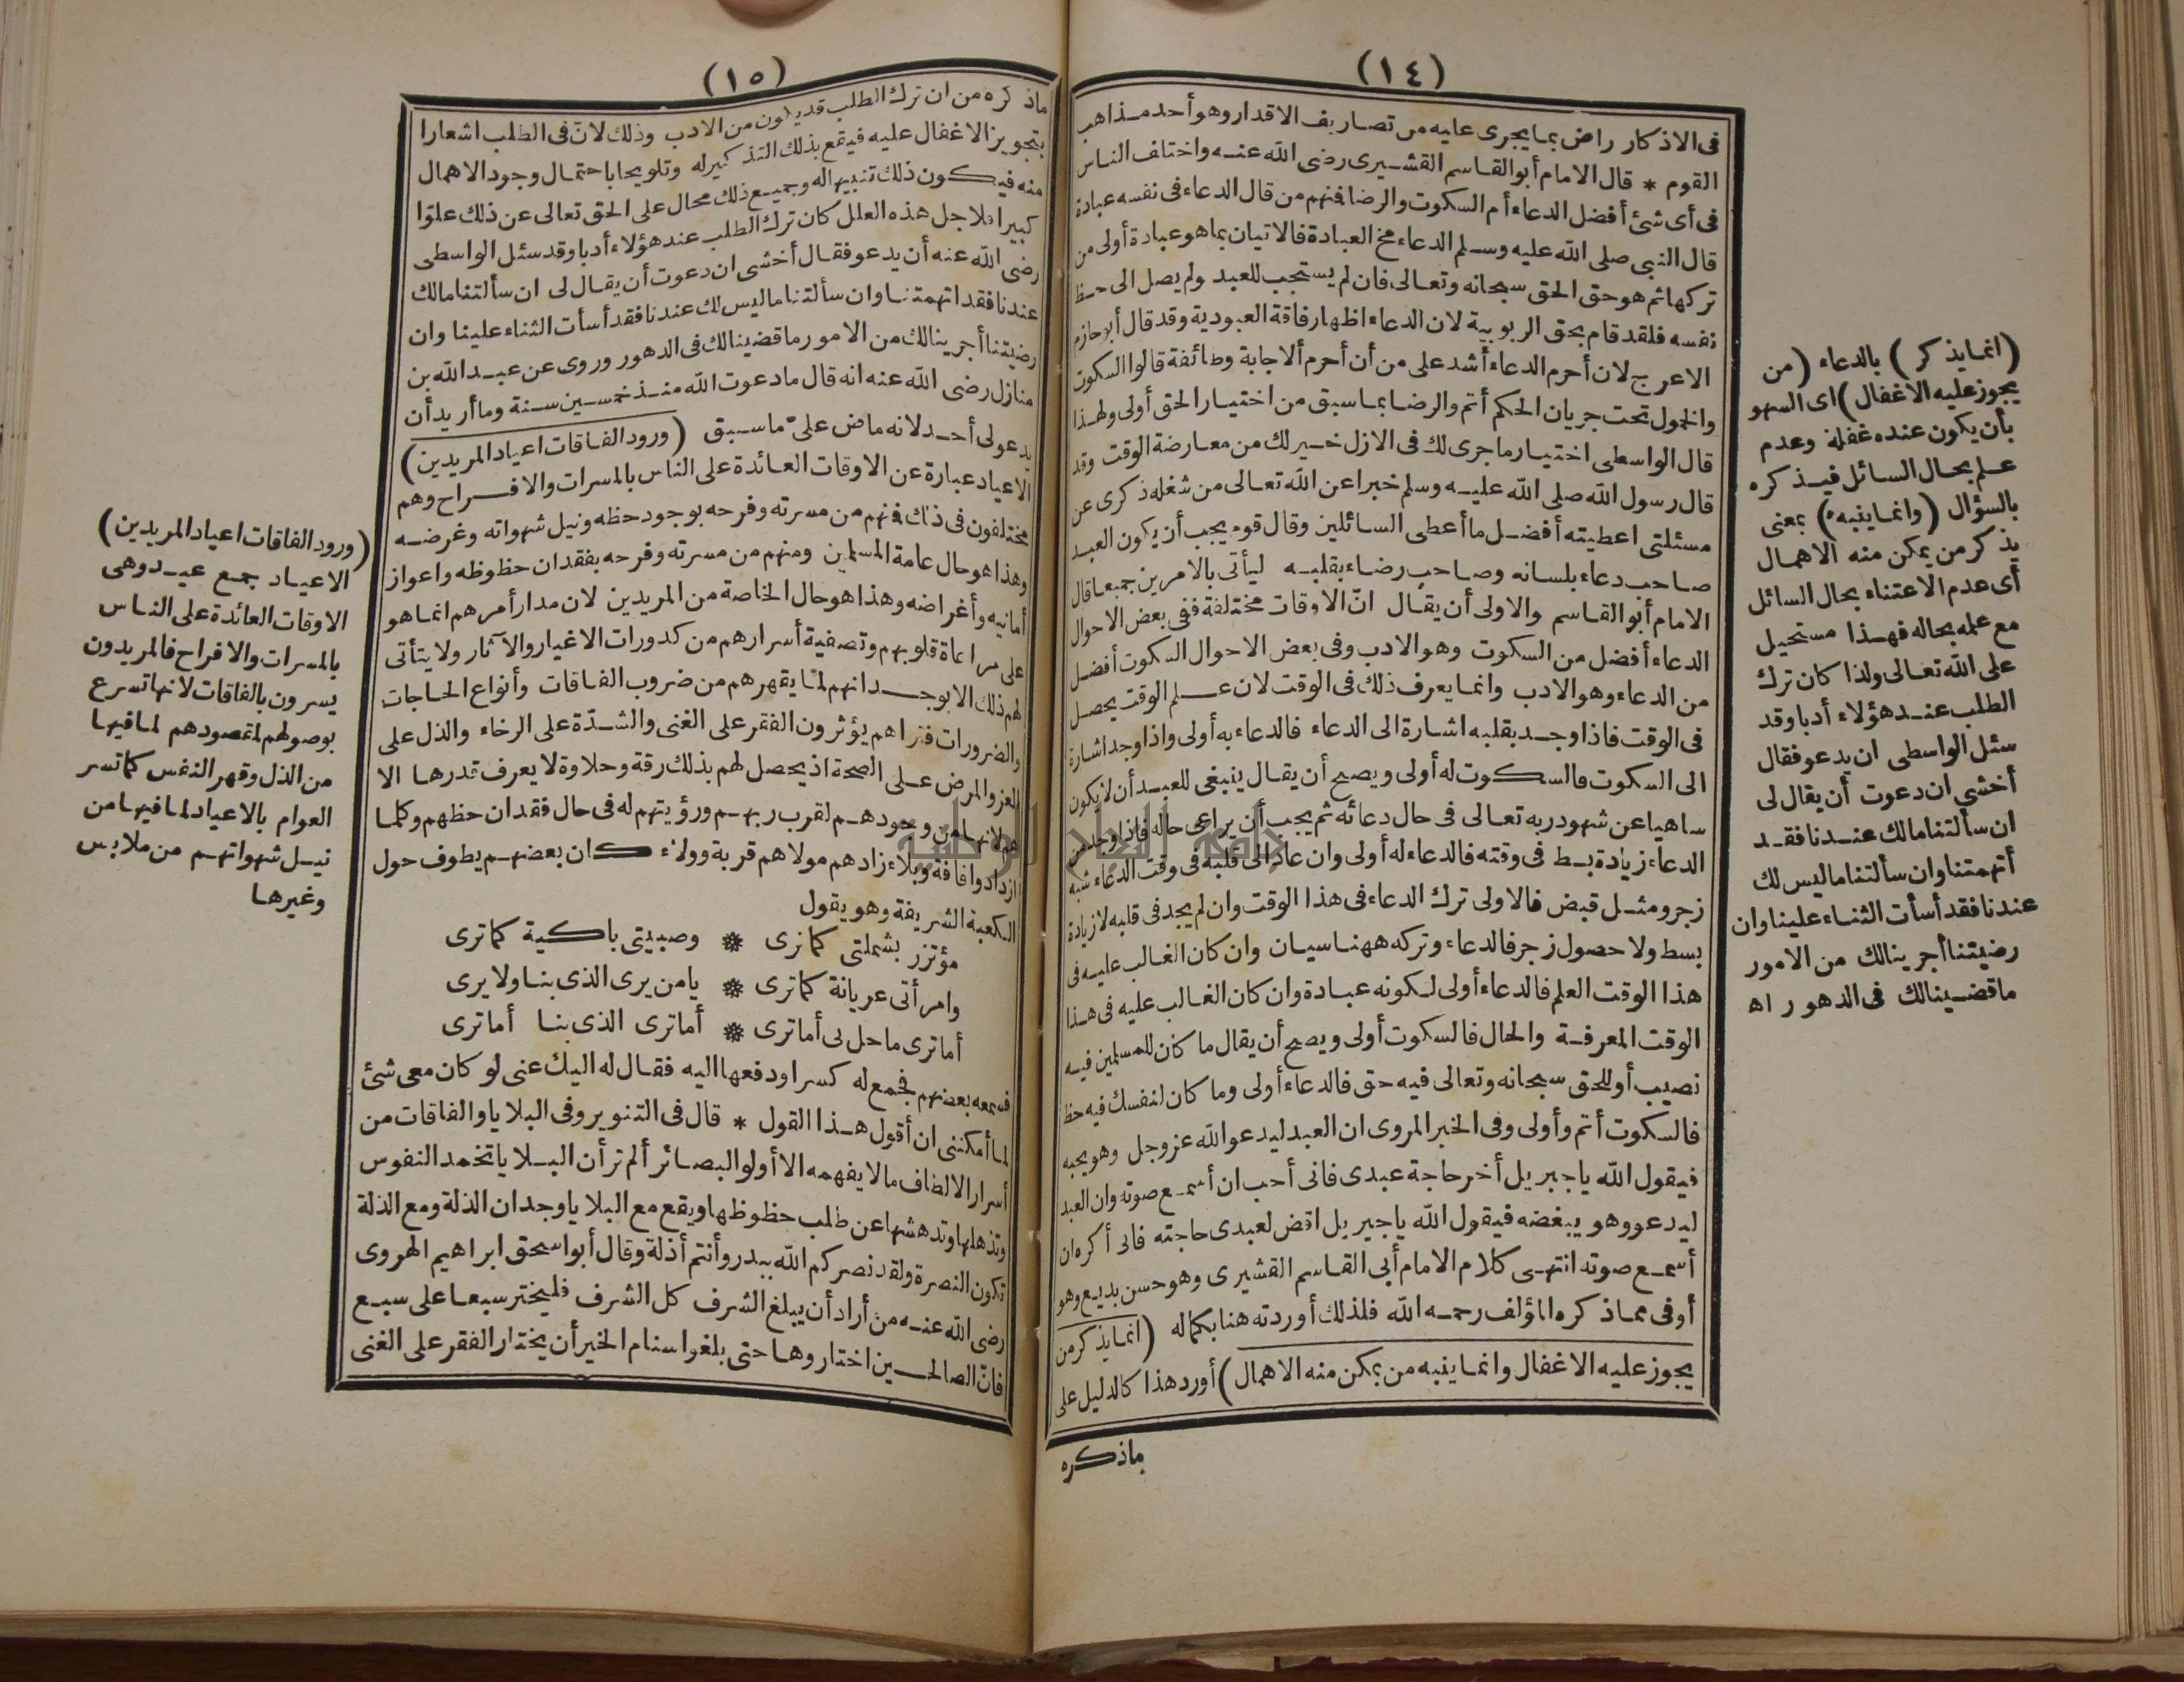 (١٤)
فى الاذكار راض بما يجرى عليه من تصاريف الاقدار وهو أحد مذاهب
القوم * قال الامام أبو القاسم القشيرى رضى الله عنه واختلف الناس
فى أى شئ أفضل الدعاء أم السكوت والرضا فمنهم من قال الدعاء فى نفسه عبادة
قال النبى صلى الله عليه وسلم الدعاء مخ العبادة فالاتيان بما هو عبادة أولى من
تركها ثم هو حق الحق سبحانه وتعالى فان لم يستجب للعبد ولم يصل الى حظ
نفسه فلقد قام بحق الربوبية لان الدعاء اظهار فاقة العبودية وقد قال أبو حازم
الاعرج لان أحرم الدعاء أشد على من أن أحرم الاجابة وطائفة قالوا السكوت
والخمول تحت جريان الحكم أتم والرضا بما سبق من اختيار الحق أولى ولهذا
قال الواسطى اختيار ما جرى لك فى الازل خير لك من معارضة الوقت وقد
قال رسول الله صلى الله عليه وسلم خبرا عن الله تعالى من شغله ذكرى عن
مسئلتى اعطيته أفضل ما أعطى السائلين وقال قوم يجب أن يكون العبد
صاحب دعاء بلسانه وصاحب رضاء بقلبه ليأتى بالامرين جميعا قال
الامام أبو القاسم والاولى أن يقال انّ الاوقات مختلفة ففى بعض الاحوال
الدعاء أفضل من السكوت وهو الادب وفى بعض الاحوال السكوت أفضل
من الدعاء وهو الادب وانما يعرف ذلك فى الوقت لان علم الوقت يحصل
فى الوقت فاذا وجد بقلبه اشارة الى الدعاء فالدعاء به أولى واذا وجد اشارة
الى السكوت فالسكوت له أولى ويصح أن يقال ينبغى للعبد أن لا يكون
ساهيا عن شهود ربه تعالى فى حال دعائه ثم يجب أن يراعى حاله فاذا وجد من
الدعاء زيادة بسط فى وقته فالدعاء له أولى وان عاد الى قلبه فى وقت الدعاء شبه
زجر ومثل قبض فالاولى ترك الدعاء فى هذا الوقت وان لم يجد فى قلبه لا زيادة
بسط ولا حصول زجر فالدعاء وتركه ههنا سيان وان كان الغالب عليه فى
هذا الوقت العلم فالدعاء أولى لكونه عبادة وان كان الغالب عليه فى هذا
الوقت المعرفة والحال فالسكوت أولى ويصح أن يقال ما كان للمسلمين فيه
نصيب أو للحق سبحانه وتعالى فيه حق فالدعاء أولى وما كان لنفسك فيه حظ
فالسكوت أتم وأولى وفى الخبر المروى ان العبد ليدعو الله عز وجل وهو يحبه
فيقول الله ياجبريل أخر حاجة عبدى فانى أحب ان أسمع صوته وان العبد
ليدعو وهو يبغضه فيقول الله ياجبريل اقض لعبدى حاجته فانى أكره ان
أسمع صوته انتهى كلام الامام أبى القاسم القشيرى وهو حسن بديع وهو
أوفى مما ذكره المؤلف رحمه الله فلذلك أوردته هنا بكماله (انما يذكر من
يجوز عليه الاغفال وانما ينبه من يمكن منه الاهمال) أورد هذا كالدليل على
ماذكره
(انما يذكر) بالدعاء (من
يجوز عليه الاغفال) اى السهو
بأن يكون عنده غفلة وعدم
علم بحال السائل فيذكره
بالسؤال (وانما ينبه) بمعنى
يذكر من يمكن منه الاهمال
أى عدم الاعتناء بحال السائل
مع علمه بحاله فهذا مستحيل
على الله تعالى ولذا كان ترك
الطلب عند هؤلاء أدبا وقد
سئل الواسطى ان يدعو فقال
أخشى ان دعوت أن يقال لى
ان سألتنا مالك عندنا فقد
أتهمتنا وان سألتنا ما ليس لك
عندنا فقد أسأت الثناء علينا وان
رضيتنا أجرينا لك من الامور
ما قضينا لك فى الدهور اه
(١٥)
ماذكره من ان ترك الطلب قد يكون من الادب وذلك لانّ فى الطلب اشعارا
بتجويز الاغفال عليه فيقع بذلك التذكير له وتلويحا باحتمال وجود الاهمال
منه فيكون ذلك تنبيها له وجميع ذلك محال على الحق تعالى عن ذلك علوّا
كبيرا فلاجل هذه العلل كان ترك الطلب عند هؤلاء أدبا وقد سئل الواسطى
رضى الله عنه أن يدعو فقال أخشى ان دعوت أن يقال لى ان سألتنا مالك
عندنا فقد اتهمتنا وان سألتنا ما ليس لك عندنا فقد أسأت الثناء علينا وان
رضيتنا أجرينا لك من الامور ما قضينا لك فى الدهور وروى عن عبد الله بن
منازل رضى الله عنه انه قال ما دعوت الله منذ خمسين سنة وما أريد أن
يدعو لى أحد لانه ماض علىّ ما سبق (ورود الفاقات اعياد المريدين)
الاعياد عبارة عن الاوقات العائدة على الناس بالمسرات والافراح وهم
مختلفون فى ذلك فمنهم من مسرته وفرحه بوجود حظه ونيل شهواته وغرضه
وهذا هو حال عامة المسلمين ومنهم من مسرته وفرحه بفقدان حظوظه واعواز
أمانيه وأغراضه وهذا هو حال الخاصة من المريدين لان مدار أمرهم انما هو
على مراعاة قلوبهم وتصفية أسرارهم من كدورات الاغيار والآثار ولا يتأتى
لهم ذلك الا بوجدانهم لما يقهرهم من ضروب الفاقات وأنواع الحاجات
والضرورات فتراهم يؤثرون الفقر على الغنى والشدّة على الرخاء والذل على
العز والمرض على الصحة اذ يحصل لهم بذلك رقة وحلاوة لا يعرف قدرها الا
هم لانها من وجودهم لقرب ربهم ورؤيتهم له فى حال فقدان حظهم وكلما
ازدادوا فاقة وبلاء زادهم مولاهم قربة وولاء كان بعضهم يطوف حول
الكعبة الشريفة وهو يقول
مؤتزر بشملتى كما ترى * وصبيتى باكية كما ترى
وامرأتى عريانة كما ترى * يا من يرى الذى بنا ولا يرى
أما ترى ما حل بى أما ترى * أما ترى الذى بنا أما ترى
فسمعه بعضهم فجمع له كسرا ودفعها اليه فقال له اليك عنى لو كان معى شئ
لما أمكننى ان أقول هذا القول * قال فى التنوير وفى البلايا والفاقات من
أسرار الالطاف ما لا يفهمه الا أولو البصائر ألم تر أن البلايا تخمد النفوس
وتذهلها وتدهشها عن طلب حظوظها ويقع مع البلايا وجدان الذلة ومع الذلة
تكون النصرة ولقد نصركم الله ببدر وأنتم أذلة وقال أبو اسحق ابراهيم الهروى
رضى الله عنه من أراد أن يبلغ الشرف كل الشرف فليختر سبعا على سبع
فانّ الصالحين اختاروها حتى بلغوا سنام الخير أن يختار الفقر على الغنى
(ورود الفاقات اعياد المريدين)
الاعياد جمع عيد وهى
الاوقات العائدة على الناس
بالمسرات والافراح فالمريدون
يسرون بالفاقات لانها تسرع
بوصولهم لمقصودهم لما فيها
من الذل وقهر النفس كما تسر
العوام بالاعياد لما فيها من
نيل شهواتهم من ملابس
وغيرها
جامعة النجاح الوطنية